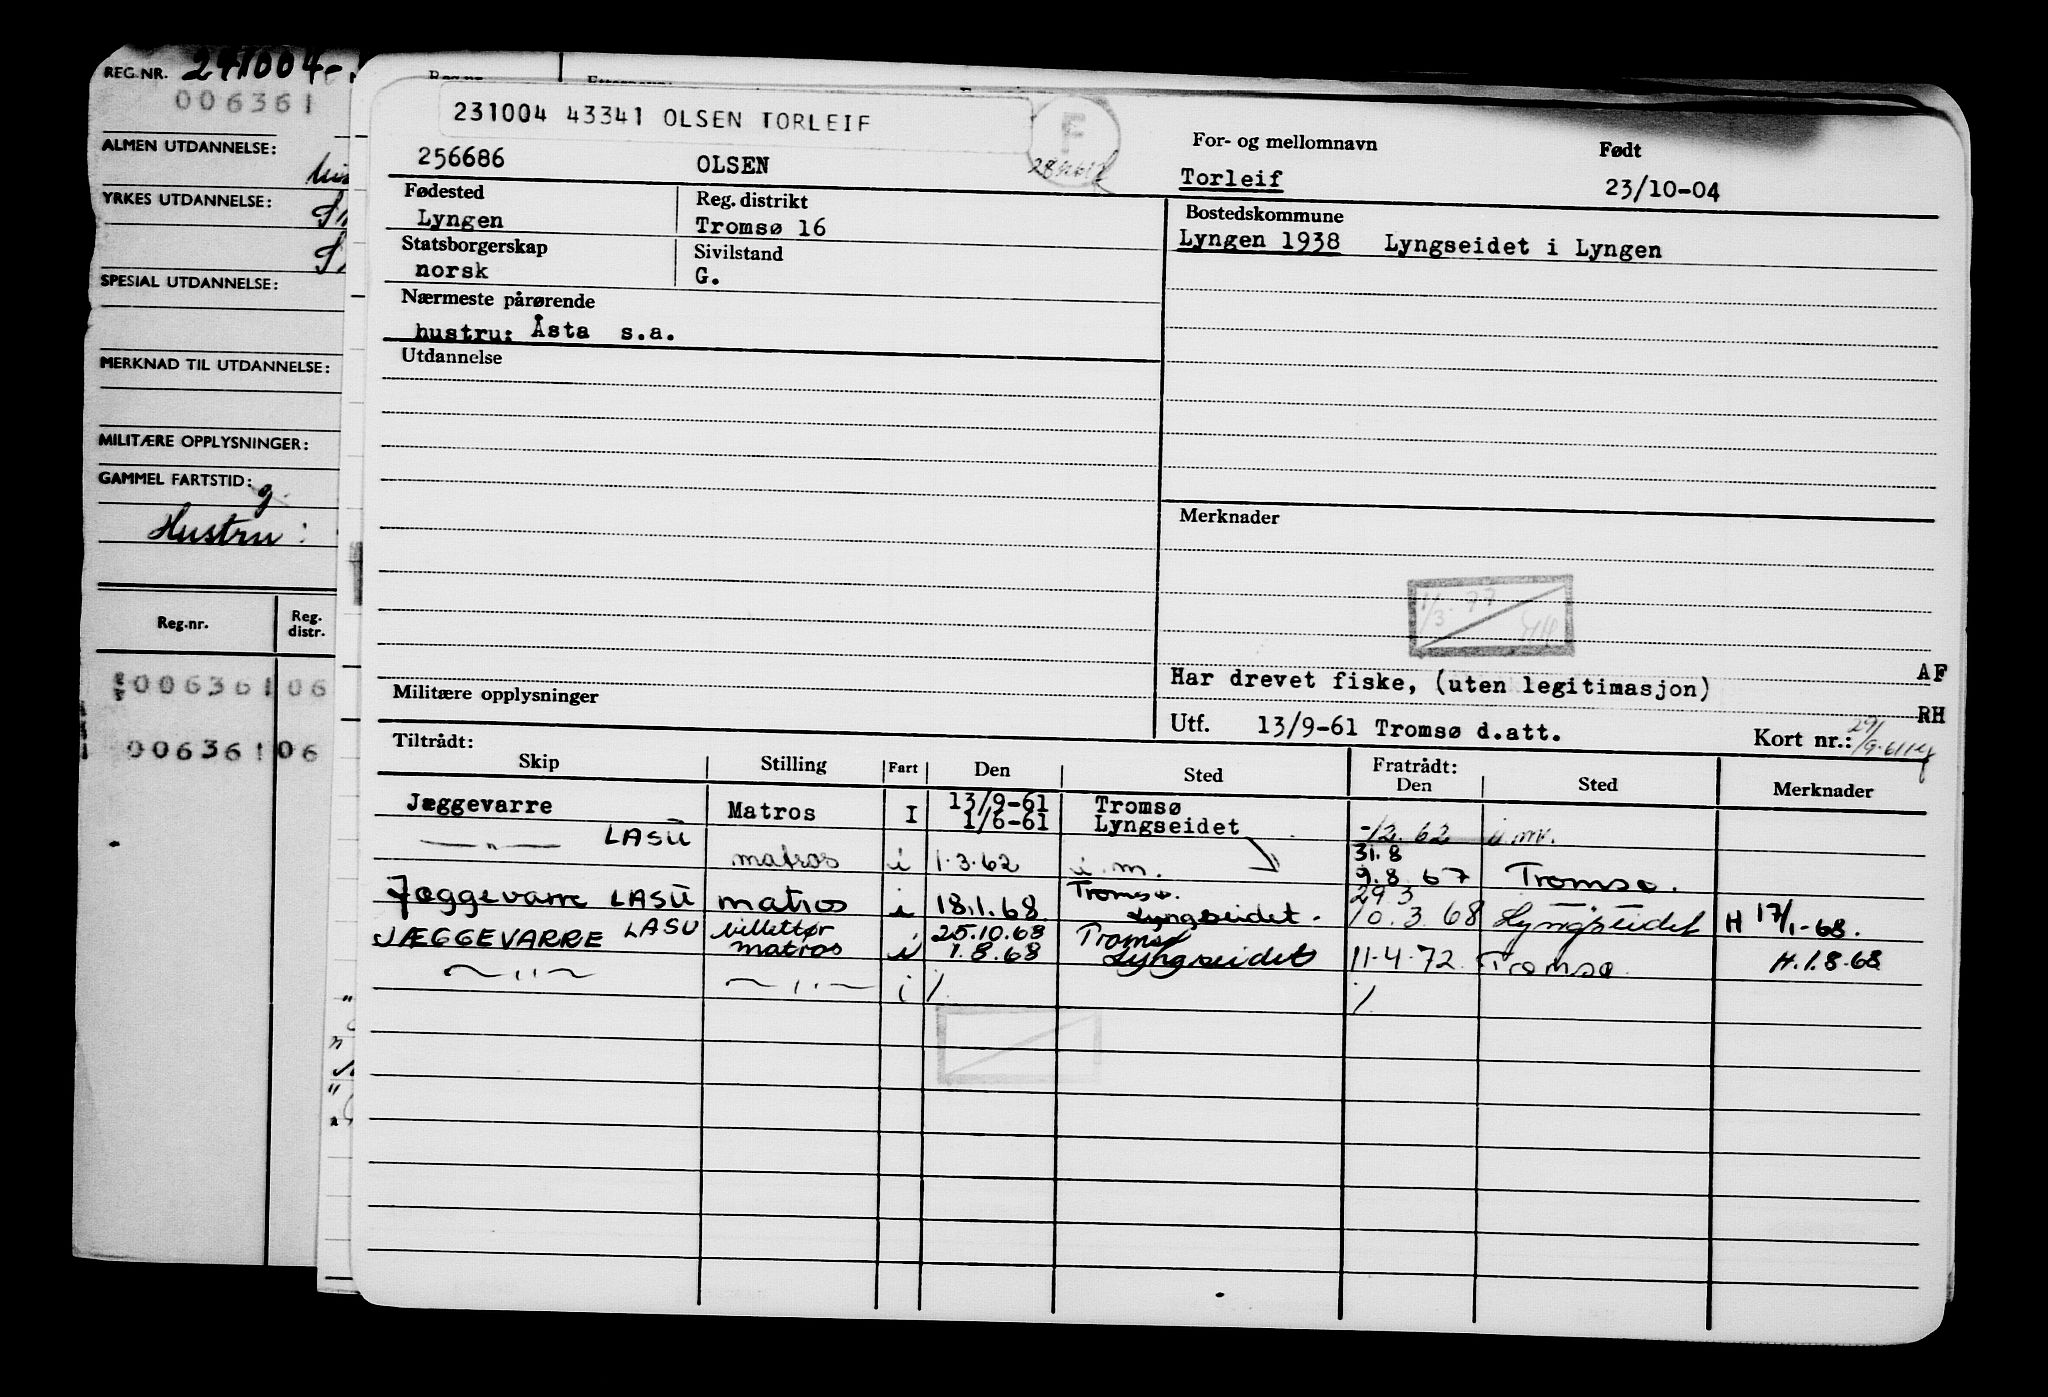 REG.NR. 241004-
006361
ALMEN UTDANNELSE:
YRKES UTDANNELSE:
SPESIAL UTDANNELSE:
MERKNAD TIL UTDANNELSE:
MILITÆRE OPPLYSNINGER:
GAMMEL FARTSTID: g.
Hustru:
Reg.nr. Reg. distr.
006361 06
006361 06
231004 43341 OLSEN TORLEIF
F
256686 OLSEN
For- og mellomnavn Født
Torleif 23/10-04
Fødested Reg. distrikt
Lyngen Tromsø 16
Statsborgerskap Sivilstand
norsk G.
Nærmeste pårørende
hustru: Åsta s.a.
Utdannelse
Militære opplysninger
Bostedskommune
Lyngen 1938 Lyngseidet i Lyngen
Merknader
1/3-77
Har drevet fiske, (uten legitimasjon) AF
RH
Utf. 13/9-61 Tromsø d.att. Kort nr.:
Tiltrådt: Fratrådt:
Skip Stilling Fart Den Sted Den Sted Merknader
Jæggevarre Matros I 13/9-61 Tromsø
1/6-61 Lyngseidet -12.62 u.mk.
—"— LASU matros i 1.3.62 i m. 31.8
9.8 67 Tromsø.
Jæggevarre LASU matros i 18.1.68 Tromsø. Lyngseidet. 29 3
10.3.68 Lyngseidet H 17/1-68.
JÆGGEVARRE LASU billettør 25.10.68 Tromsø
matros i 1.8.68 Lyngseidet 11.4.72 Tromsø H.1.8.68
—"— —"— i /. /.